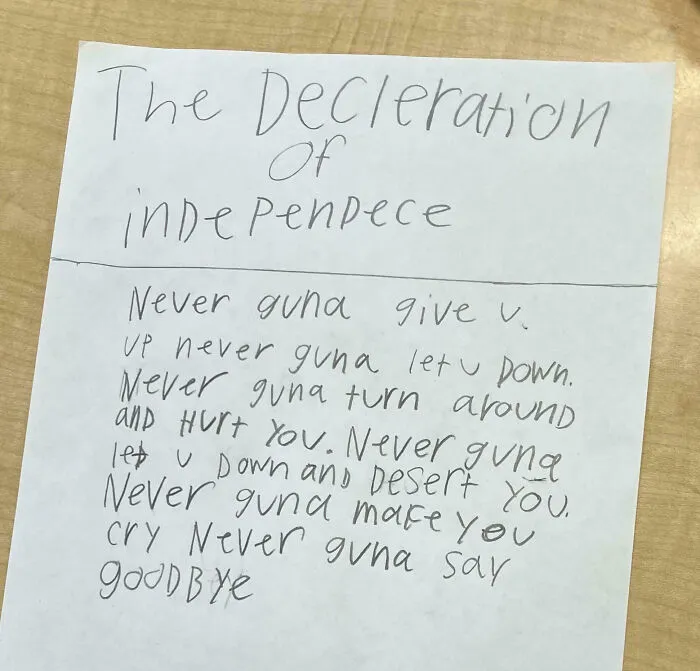 The Decleration
Of
inDepenDece
Never guna give u.
up never guna let u Down.
Never guna turn around
anD Hurt You. Never guna
let u Down anD Desert You.
Never guna make you
cry Never guna say
gooDBye